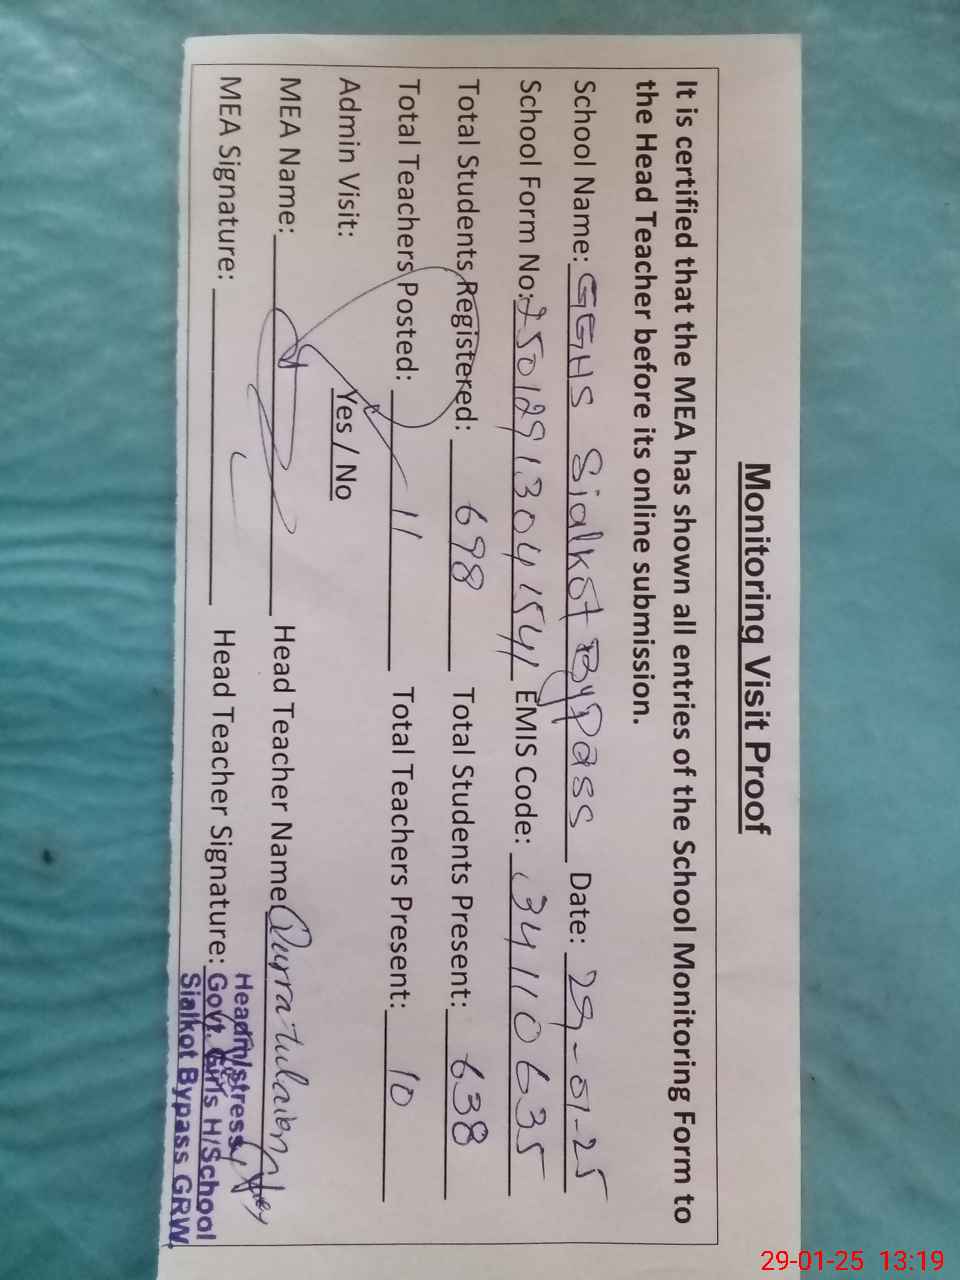 Monitoring Visit Proof
It is certified that the MEA has shown all entries of the School Monitoring Form to
the Head Teacher before its online submission.
School Name: GGHS Sialkot Bypass Date: 29-01-25
School Form No: 25012913041541 EMIS Code: 34110635
Total Students Registered: 698 Total Students Present: 638
Total Teachers Posted: 11 Total Teachers Present: 10
Admin Visit: Yes / No
MEA Name: Head Teacher Name: Qurratulain
MEA Signature: Head Teacher Signature:
Headmistress
Govt. Girls H/School
Sialkot Bypass GRW.
29-01-25 13:19